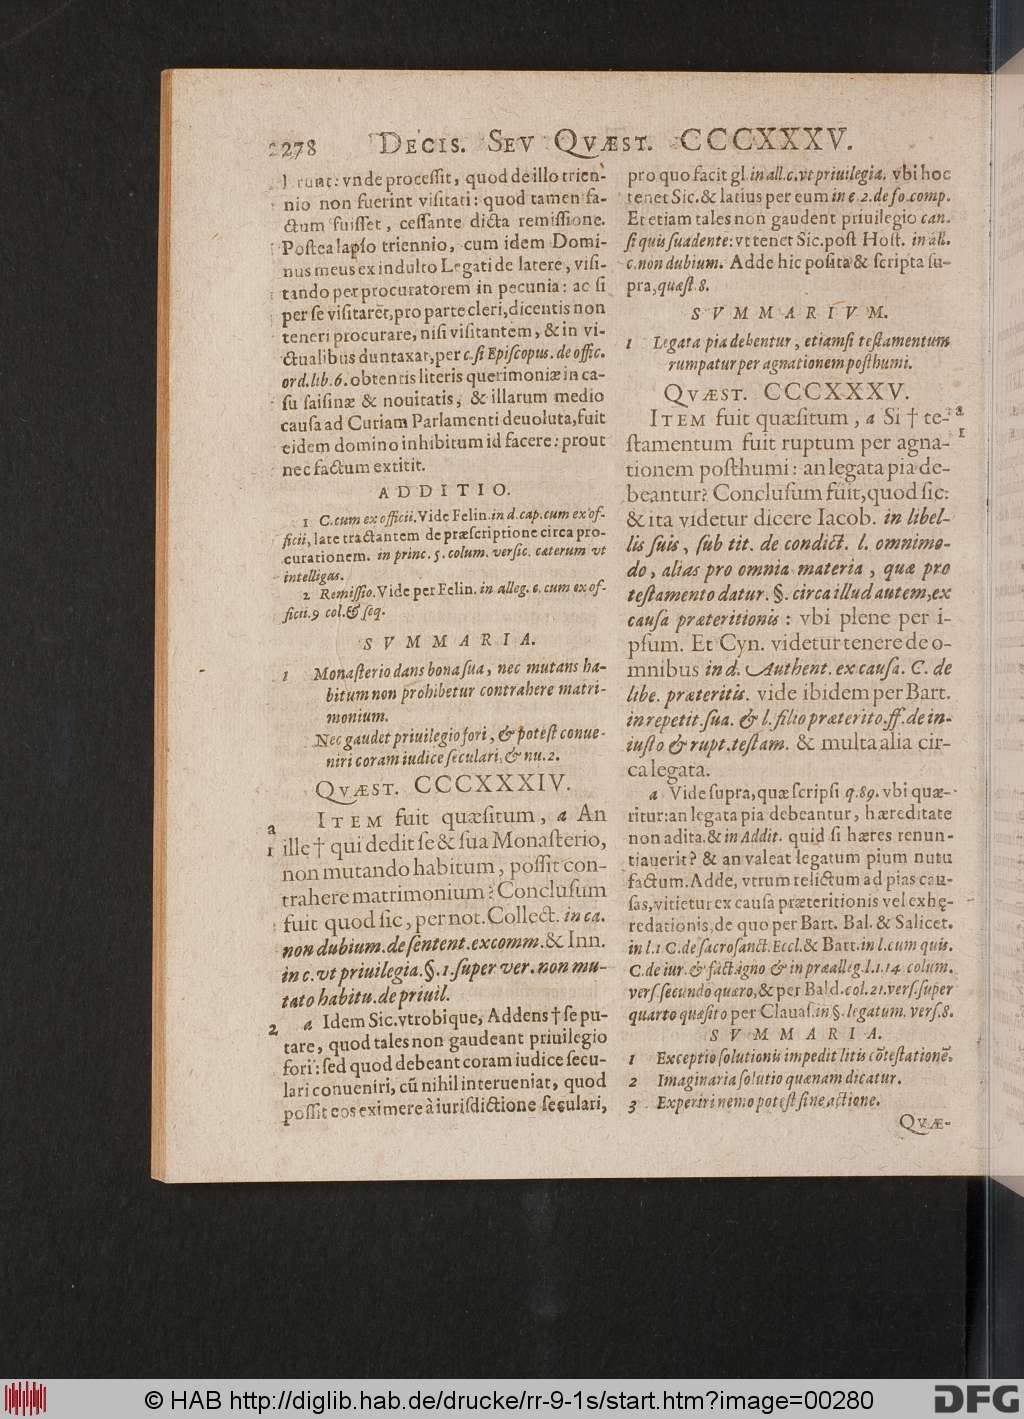 278 DECIS. SEV QVÆST. CCCXXXV.
runt: vnde processit, quod de illo trien-
nio non fuerint visitati: quod tamen fa-
ctum fuisset, cessante dicta remissione.
Postea lapso triennio, cum idem Domi-
nus meus ex indulto Legati de latere, visi-
tando per procuratorem in pecunia: ac si
per se visitarēt, pro parte cleri, dicentis non
teneri procurare, nisi visitantem, & in vi-
ctualibus duntaxat, per c. si Episcopus. de offic.
ord. lib. 6. obtentis literis querimoniæ in ca-
su saisinæ & nouitatis, & illarum medio
causa ad Curiam Parlamenti deuoluta, fuit
eidem domino inhibitum id facere: prout
nec factum extitit.
ADDITIO.
1 C. cum ex officii. Vide Felin. in d. cap. cum ex of-
ficii, late tractantem de præscriptione circa pro-
curationem. in princ. 5. colum. versic. cæterum vt
intelligas.
2 Remissio. Vide per Felin. in alleg. c. cum ex of-
ficii. 9 col. & seq.
SVMMARIA.
1 Monasterio dans bona sua, nec mutans ha-
bitum non prohibetur contrahere matri-
monium.
Nec gaudet priuilegio fori, & potest conue-
niri coram iudice seculari, & nu. 2.
QVÆST. CCCXXXIV.
a ITEM fuit quæsitum, a An
1 ille † qui dedit se & sua Monasterio,
non mutando habitum, possit con-
trahere matrimonium? Conclusum
fuit quod sic, per not. Collect. in ca.
non dubium. de sentent. excomm. & Inn.
in c. vt priuilegia. §. 1. super ver. non mu-
tato habitu. de priuil.
2 a Idem Sic. vtrobique, Addens † se pu-
tare, quod tales non gaudeant priuilegio
fori: sed quod debeant coram iudice secu-
lari conueniri, cū nihil interueniat, quod
possit eos eximere à iurisdictione seculari,
pro quo facit gl. in all. c. vt priuilegia. vbi hoc
tenet Sic. & latius per eum in c. 2. de fo. comp.
Et etiam tales non gaudent priuilegio can.
si quis suadente: vt tenet Sic. post Host. in all.
c. non dubium. Adde hic posita & scripta su-
pra, quæst. 8.
SVMMARIVM.
1 Legata pia debentur, etiamsi testamentum
rumpatur per agnationem posthumi.
QVÆST. CCCXXXV.
ITEM fuit quæsitum, a Si † te- a
stamentum fuit ruptum per agna- 1
tionem posthumi: an legata pia de-
beantur? Conclusum fuit, quod sic:
& ita videtur dicere Iacob. in libel-
lis suis, sub tit. de condict. l. omnimo-
do, alias pro omnia materia, quæ pro
testamento datur. §. circa illud autem, ex
causa præteritionis: vbi plene per i-
psum. Et Cyn. videtur tenere de o-
mnibus in d. Authent. ex causa. C. de
libe. præteritis. vide ibidem per Bart.
in repetit. sua. & l. filio præterito. ff. de in-
iusto & rupt. testam. & multa alia cir-
ca legata.
a Vide supra, quæ scripsi q. 89. vbi quæ-
ritur: an legata pia debeantur, hæreditate
non adita. & in Addit. quid si hæres renun-
tiauerit? & an valeat legatum pium nutu
factum. Adde, vtrum relictum ad pias cau-
sas, vitietur ex causa præteritionis vel exhę-
redationis, de quo per Bart. Bal. & Salicet.
in l. 1 C. de sacrosanct. Eccl. & Bart. in l. cum quis.
C. de iur. & fact. igno & in præalleg. l. 1. 14 colum.
vers. secundo quæro, & per Bald. col. 21. vers. super
quarto quæsito per Clauas. in §. legatum. vers. 8.
SVMMARIA.
1 Exceptio solutionis impedit litis cōtestationē.
2 Imaginaria solutio quænam dicatur.
3 Experiri nemo potest sine actione.
QVÆ-
© HAB http://diglib.hab.de/drucke/rr-9-1s/start.htm?image=00280
DFG